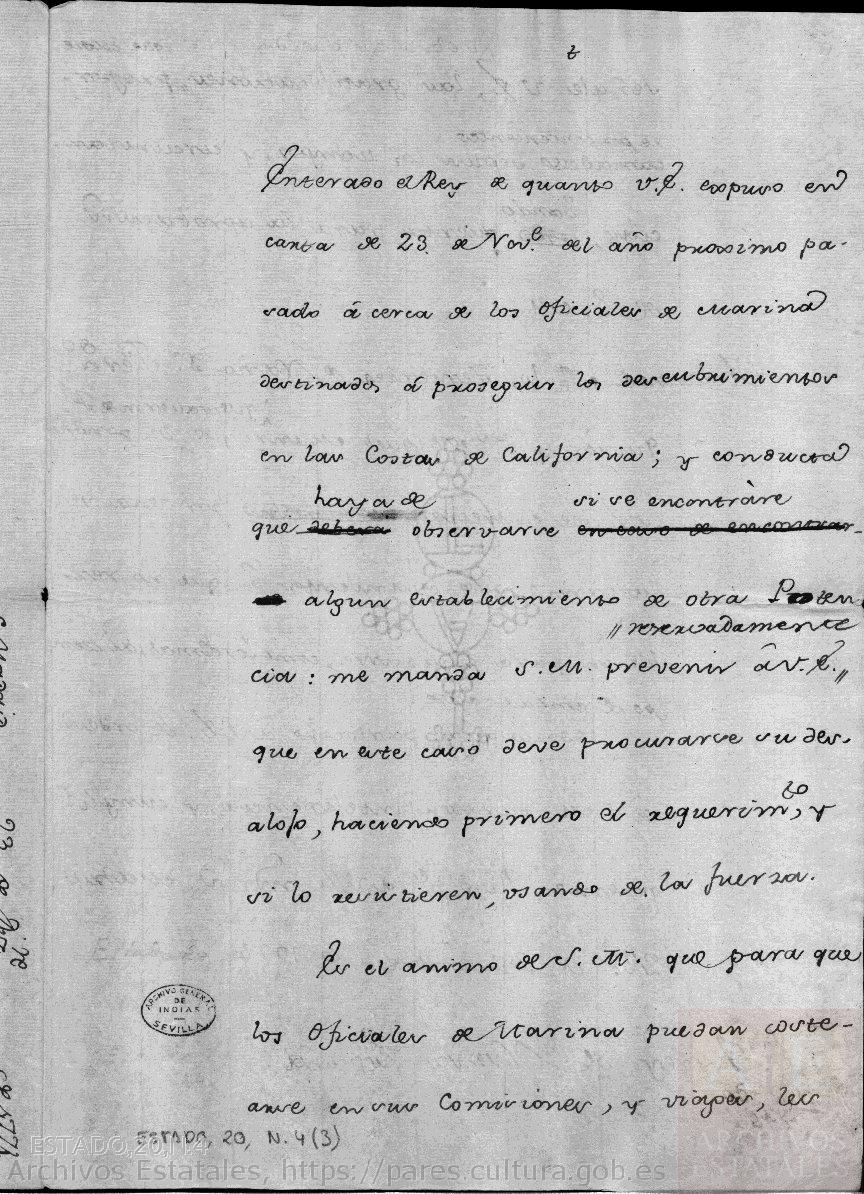 Enterado el Rey de quanto V.E. expuso en
carta de 23. de Nov.e del año proximo pa-
sado á cerca de los Oficiales de Marina
destinados á proseguir los descubrimientos
en las Costas de California; y conducta
haya de si se encontràre
que debera observarse en caso de encontrar-
algun establecimiento de otra Poten
// reservadamente
cia: me manda S.M. prevenir â V.E. //
que en este caso deve procurarse su des-
alojo, haciendo primero el requerim.to, y
si lo resistieren, usando de la fuerza.
Es el animo de S.M. que para que
los Oficiales de Marina puedan coste-
arse en sus Comisiones, y viages, les
ARCHIVO GENERAL
DE
INDIAS
SEVILLA
ESTADO, 20, N. 4 (3)
ESTADO,20,N.4
Archivos Estatales, https://pares.cultura.gob.es
ARCHIVOS
ESTATALES